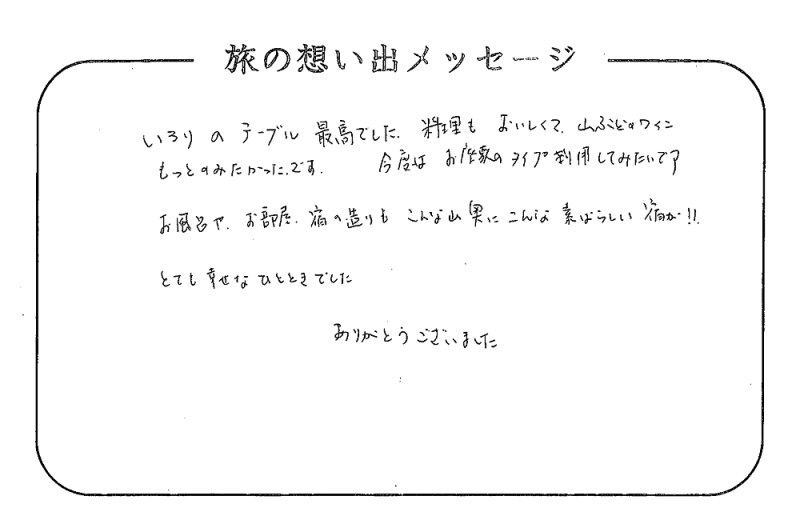 旅の想い出メッセージ
いろりのテーブル 最高でした。料理も おいしくて、山ぶどのワイン
もっとのみたかったです。 今度は お座敷のタイプ利用してみたいです
お風呂や、お部屋、宿の造りも こんな山奥に こんな 素ばらしい 宿が!!
とても 幸せな ひとときでした
ありがとうございました